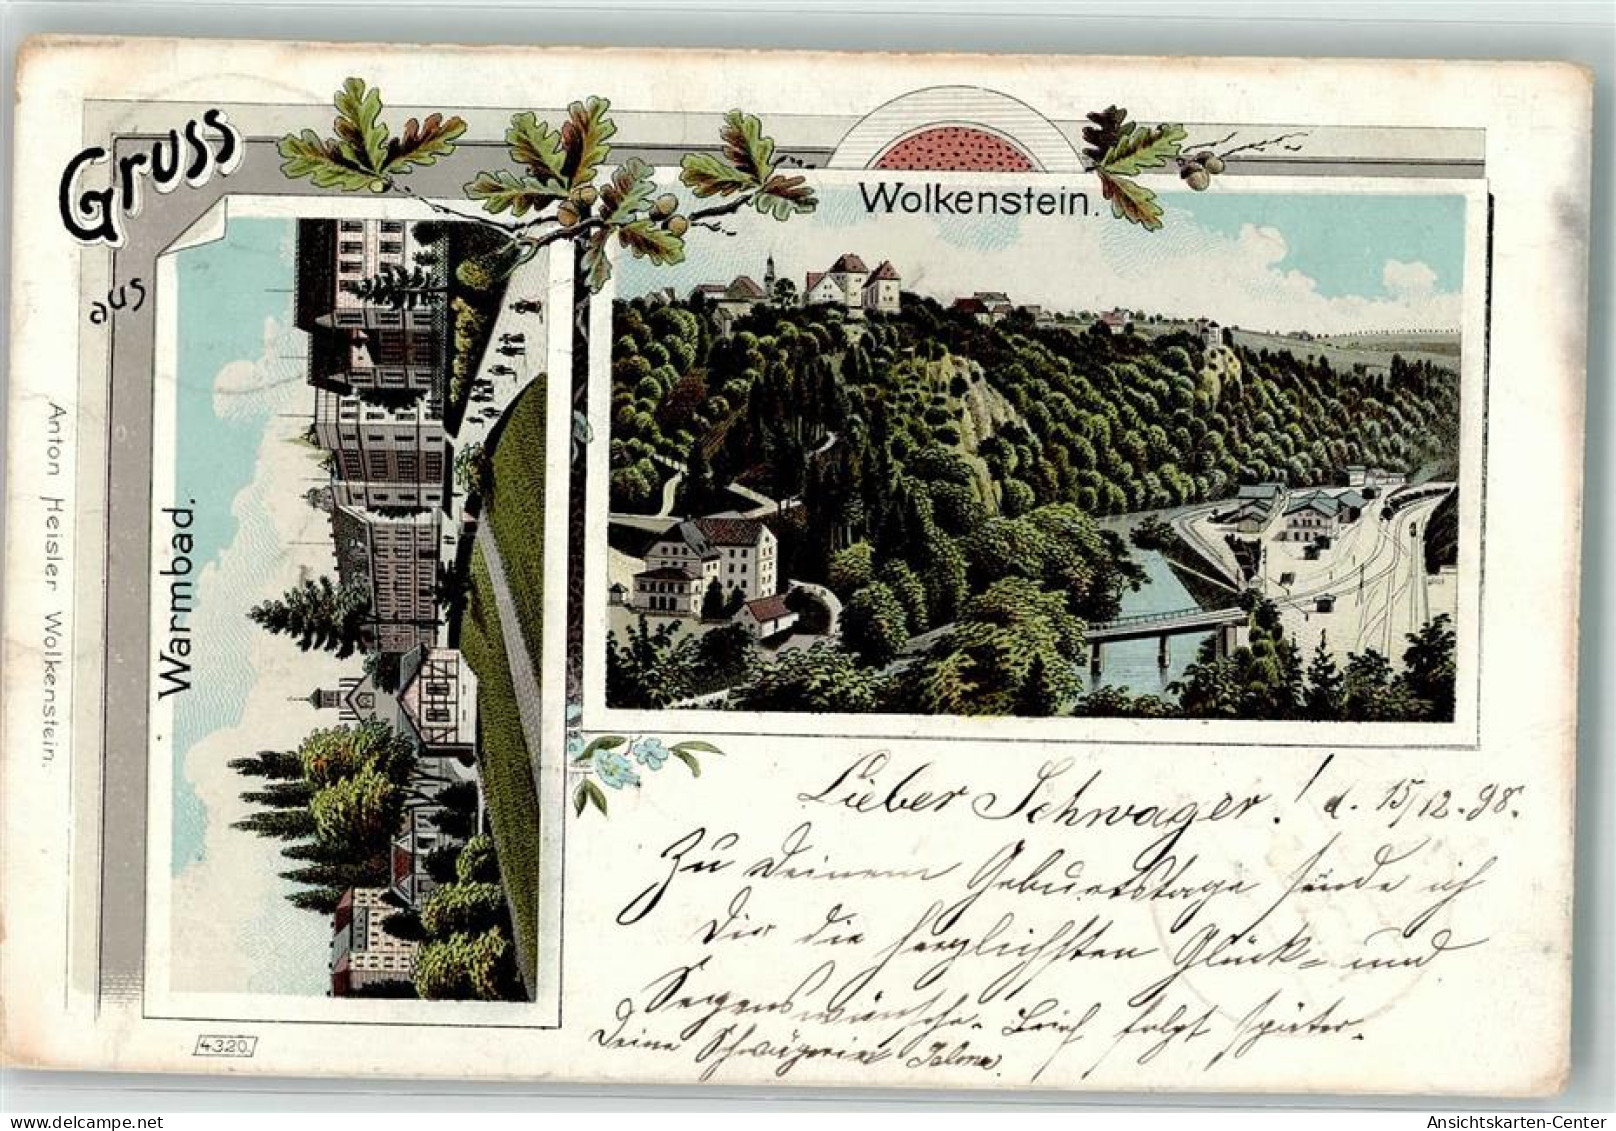 Gruss
aus
Wolkenstein.
Warmbad.
Anton Heisler Wolkenstein.
4320.
Lieber Schwager! d. 15/12. 98.
Zu Deinem Geburtstage sende ich
Dir die herzlichsten Glück- und
Segenswünsche. Brief folgt später.
Deine Schwägerin
Ansichtskarten-Center